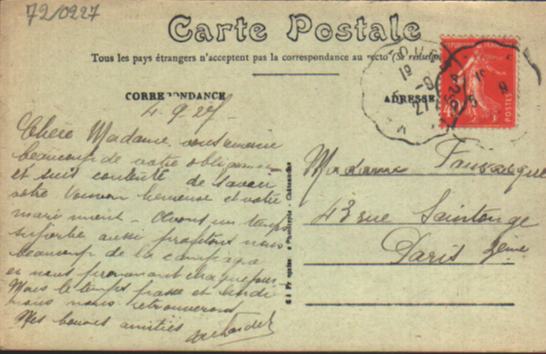 72/0227
Carte Postale
Tous les pays étrangers n'acceptent pas la correspondance au recto (Se renseigner
CORRESPONDANCE
ADRESSE
4-9-27
Chère Madame, vous
beaucoup de votre
et suis contente de savoir
votre heureuse et votre
mari Avons un temps
aussi profitons nous
beaucoup de la campagne
en nous promenant chaque jour
Mais le temps passe et lundi
nous nous retrouverons
Mes bonnes amitiés
Madame
43 rue Saintonge
Paris 3eme
POSTES